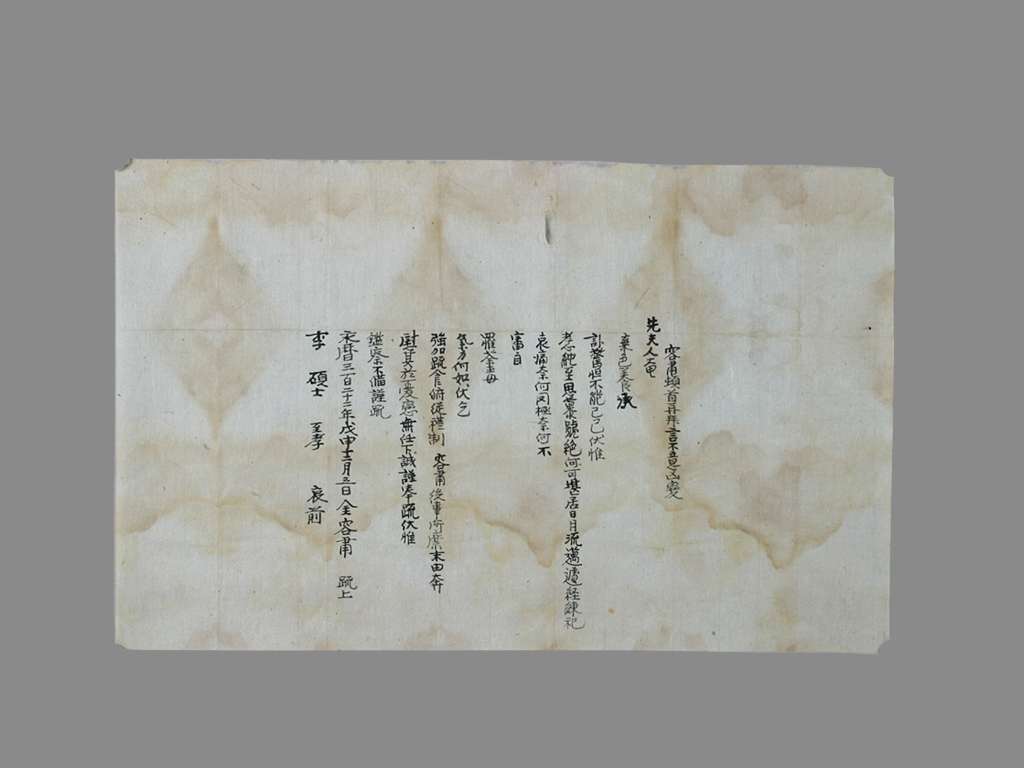 容肅頓首再拜言不意凶變
先夫人奄
棄色養承
訃驚怛不能已已伏惟
孝純至思慕號絶何可堪居日月流邁遽経練祀
哀痛奈何罔極奈何不
審自
罹荼毒
氣力何如伏乞
強加疏食俯從禮制 容肅役事所縻末由奔
慰其於憂戀無任下誠謹奉疏伏惟
鑑察不備謹疏
永曆三百二十二年戊申十二月 日 金容肅 疏上
李 碩士 至孝 哀前